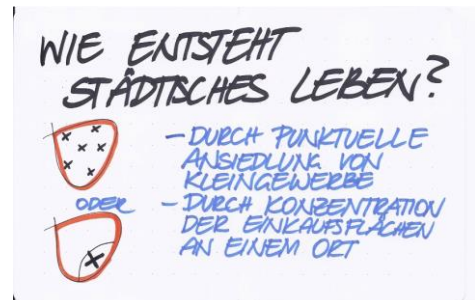 WIE ENTSTEHT
STÄDTISCHES LEBEN?
- DURCH PUNKTUELLE
ANSIEDLUNG VON
KLEINGEWERBE
ODER
- DURCH KONZENTRATION
DER EINKAUFSFLÄCHEN
AN EINEM ORT